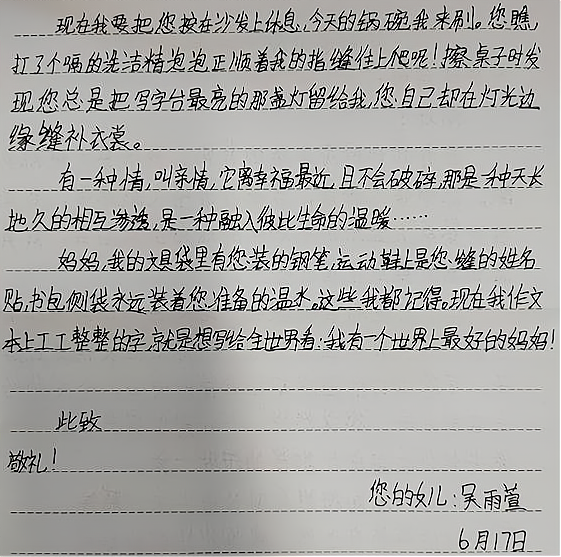 现在我要把您按在沙发上休息,今天的锅碗我来刷。您瞧,
打了个嗝的洗洁精泡泡正顺着我的指缝往上爬呢!擦桌子时发
现您总是把写字台最亮的那盏灯留给我,您自己却在灯光边
缘缝补衣裳。
有一种情,叫亲情,它离幸福最近,且不会破碎,那是一种天长
地久的相互渗透,是一种融入彼此生命的温暖……
妈妈,我的文具袋里有您装的钢笔,运动鞋上是您缝的姓名
贴,书包侧袋永远装着您准备的温水。这些我都记得。现在我作文
本上工工整整的字,就是想写给全世界看:我有一个世界上最好的妈妈!
此致
敬礼!
您的女儿:吴雨萱
6月17日